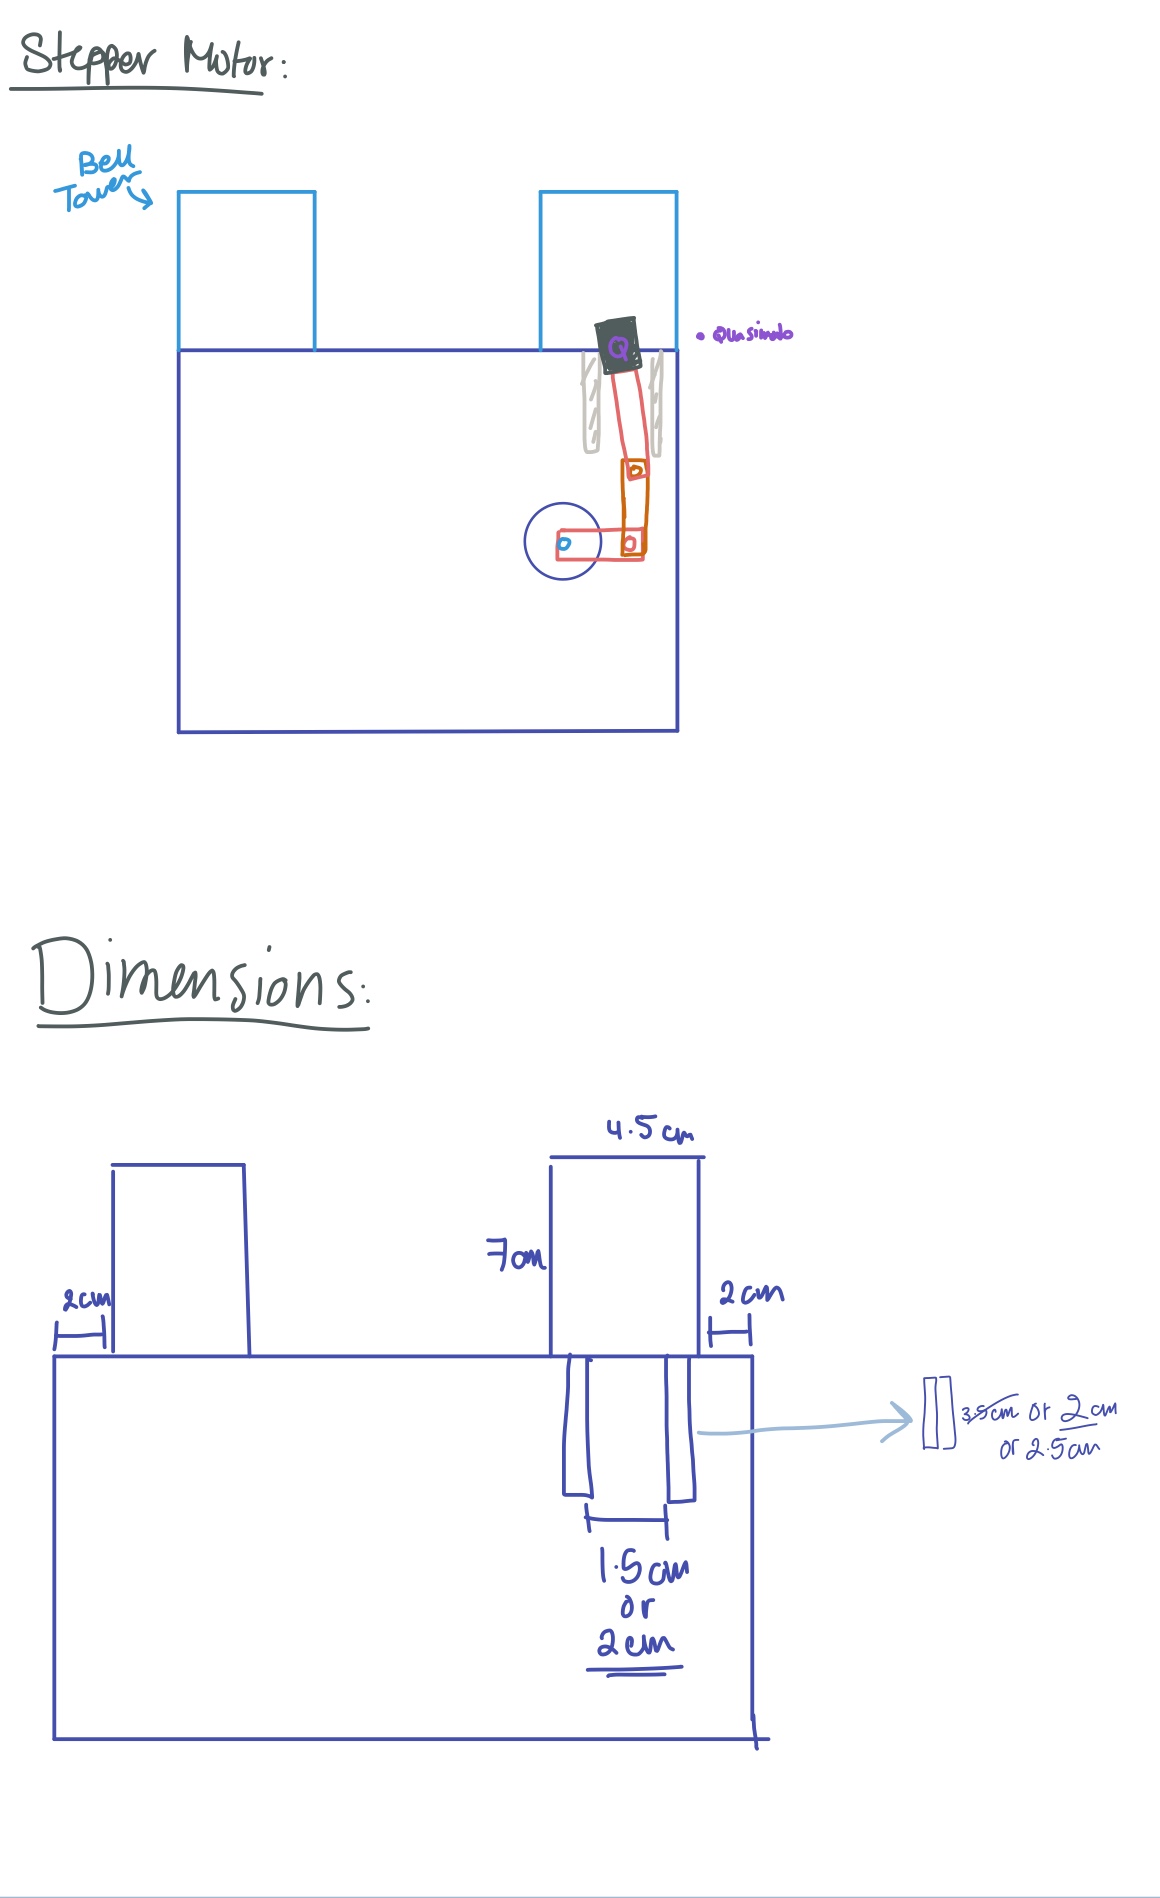 Stepper Motor:
Bell
Tower
Q
• Quasimdo
Dimensions:
4.5 cm
7cm
2cm
2cm
3.5cm or 2cm
or 2.5cm
1.5cm
or
2cm